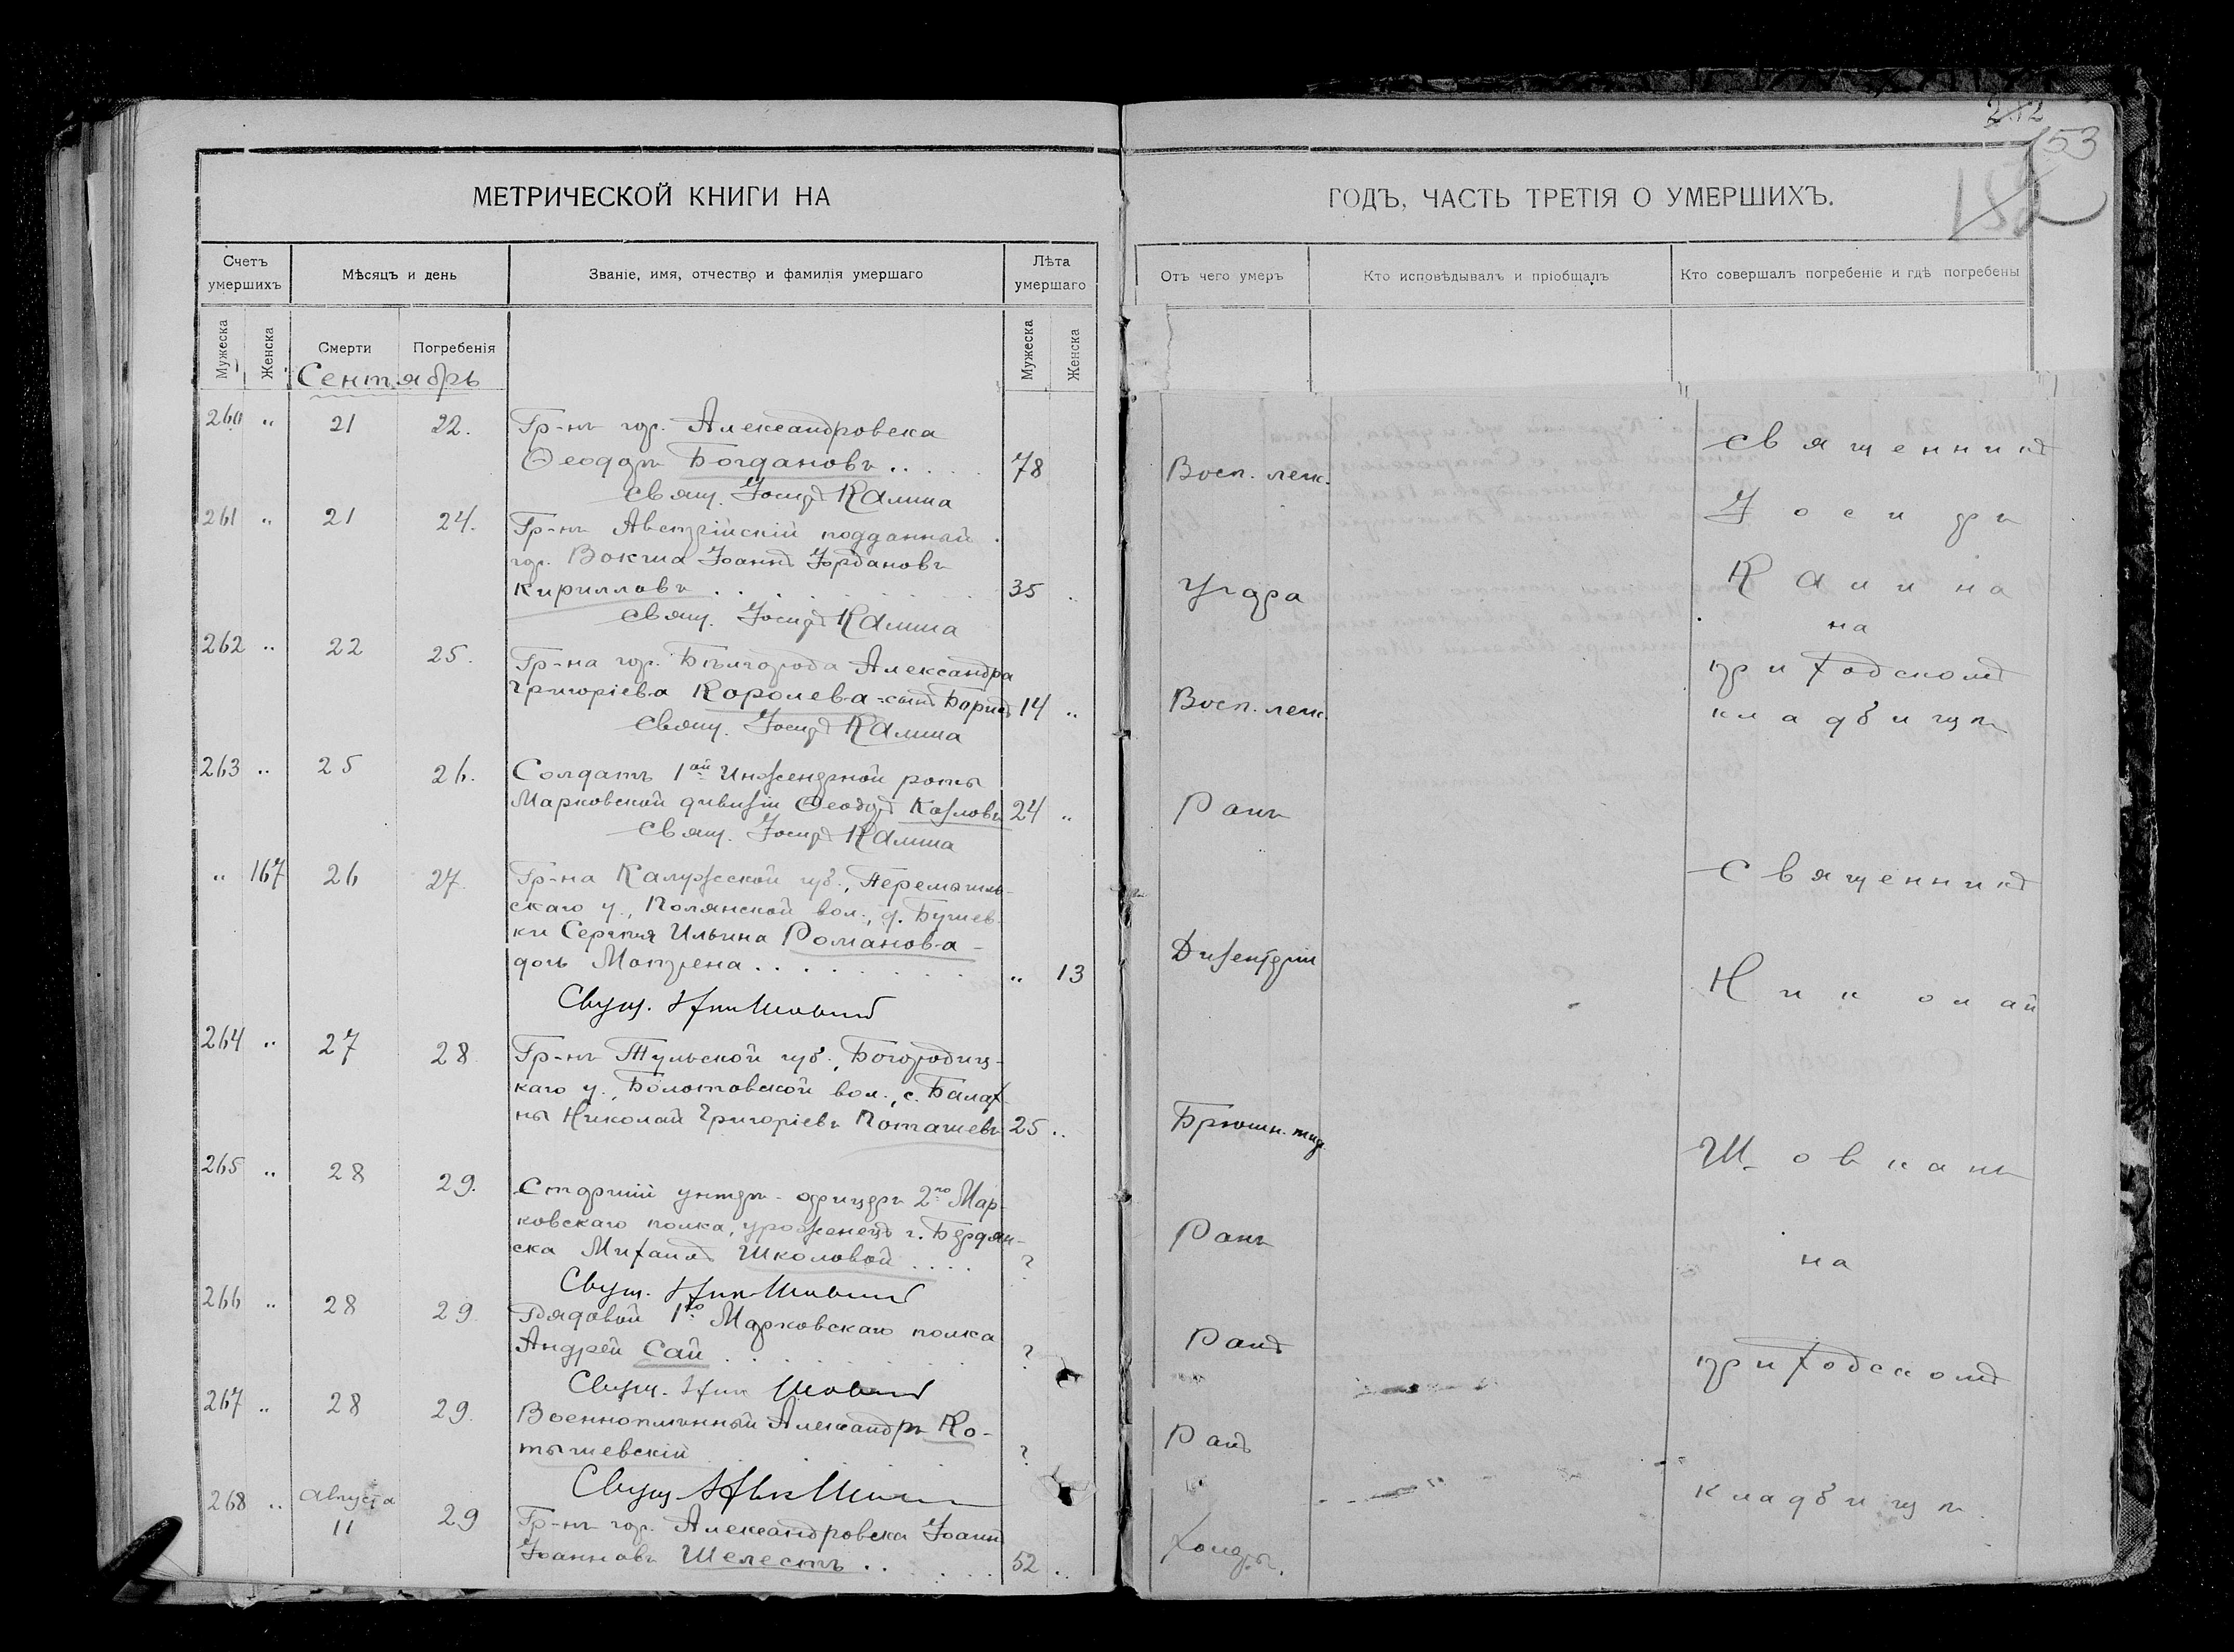 212
53
МЕТРИЧЕСКОЙ КНИГИ НА
ГОДЪ, ЧАСТЬ ТРЕТІЯ О УМЕРШИХЪ.
Счетъ умершихъ
Мѣсяцъ и день
Званіе, имя, отчество и фамилія умершаго
Лѣта умершаго
Отъ чего умеръ
Кто исповѣдывалъ и пріобщалъ
Кто совершалъ погребеніе и гдѣ погребены
Мужеска
Женска
Смерти
Погребенія
Мужеска
Женска
Сентябрь
260 " 21 22. Гр-нъ гор. Александровска
Ѳеодоръ Богдановъ . . . . . 78
Восп. легк.
Свящ. Іосифъ Калина
261 " 21 24. Гр-нъ Австрійскій подданный
гор. Вокша Іоаннъ Іордановъ
Кирилловъ . . . . . 35
Угара
Свящ. Іосифъ Калина
262 " 22 25. Гр-на гор. Бѣлгорода Александра
Григоріева Королева-сынъ Борисъ 14 "
Восп. легк.
Свящ. Іосифъ Калина
263 " 25 26. Солдатъ 1ой Инженерной роты
Марковской дивизіи Ѳеодоръ Козловъ 24 "
Ранъ
Свящ. Іосифъ Калина
Священникъ
Іосифъ
Калина
на
приходскомъ
кладбищѣ
" 167 26 27. Гр-на Калужской губ., Перемышль-
скаго у., Полянской вол., д.
ки Сергѣя Ильина Романова-
дочь Матрена . . . . . " 13
Дизентеріи
Свящ. Ник Шовкан
264 " 27 28 Гр-нъ Тульской губ., Богородиц-
каго у., Болотовской вол., с. Балах-
ны Николай Григоріевъ Поташевъ 25 "
Брюшн. тиф
265 " 28 29. Старшій унтеръ-офицеръ 2го Мар-
ковскаго полка, уроженецъ г. Бердян-
ска Михаилъ Школовой . . . . ?
Ранъ
Свящ. Ник Шовкан
266 " 28 29 Рядовой 1го Марковскаго полка
Андрей Сай . . . . . ?
Ранъ
Свящ. Ник Шовкан
267 " 28 29. Военноплѣнный Александръ Ко-
тышевскій . . . . . ?
Ранъ
Свящ Ник
268 " Августа 11 29 Гр-нъ гор. Александровска Іоаннъ
Іоанновъ Шелестъ . . . . . 52 "
Холеры.
Священникъ
Николай
Шовканъ
на
приходскомъ
кладбищѣ.